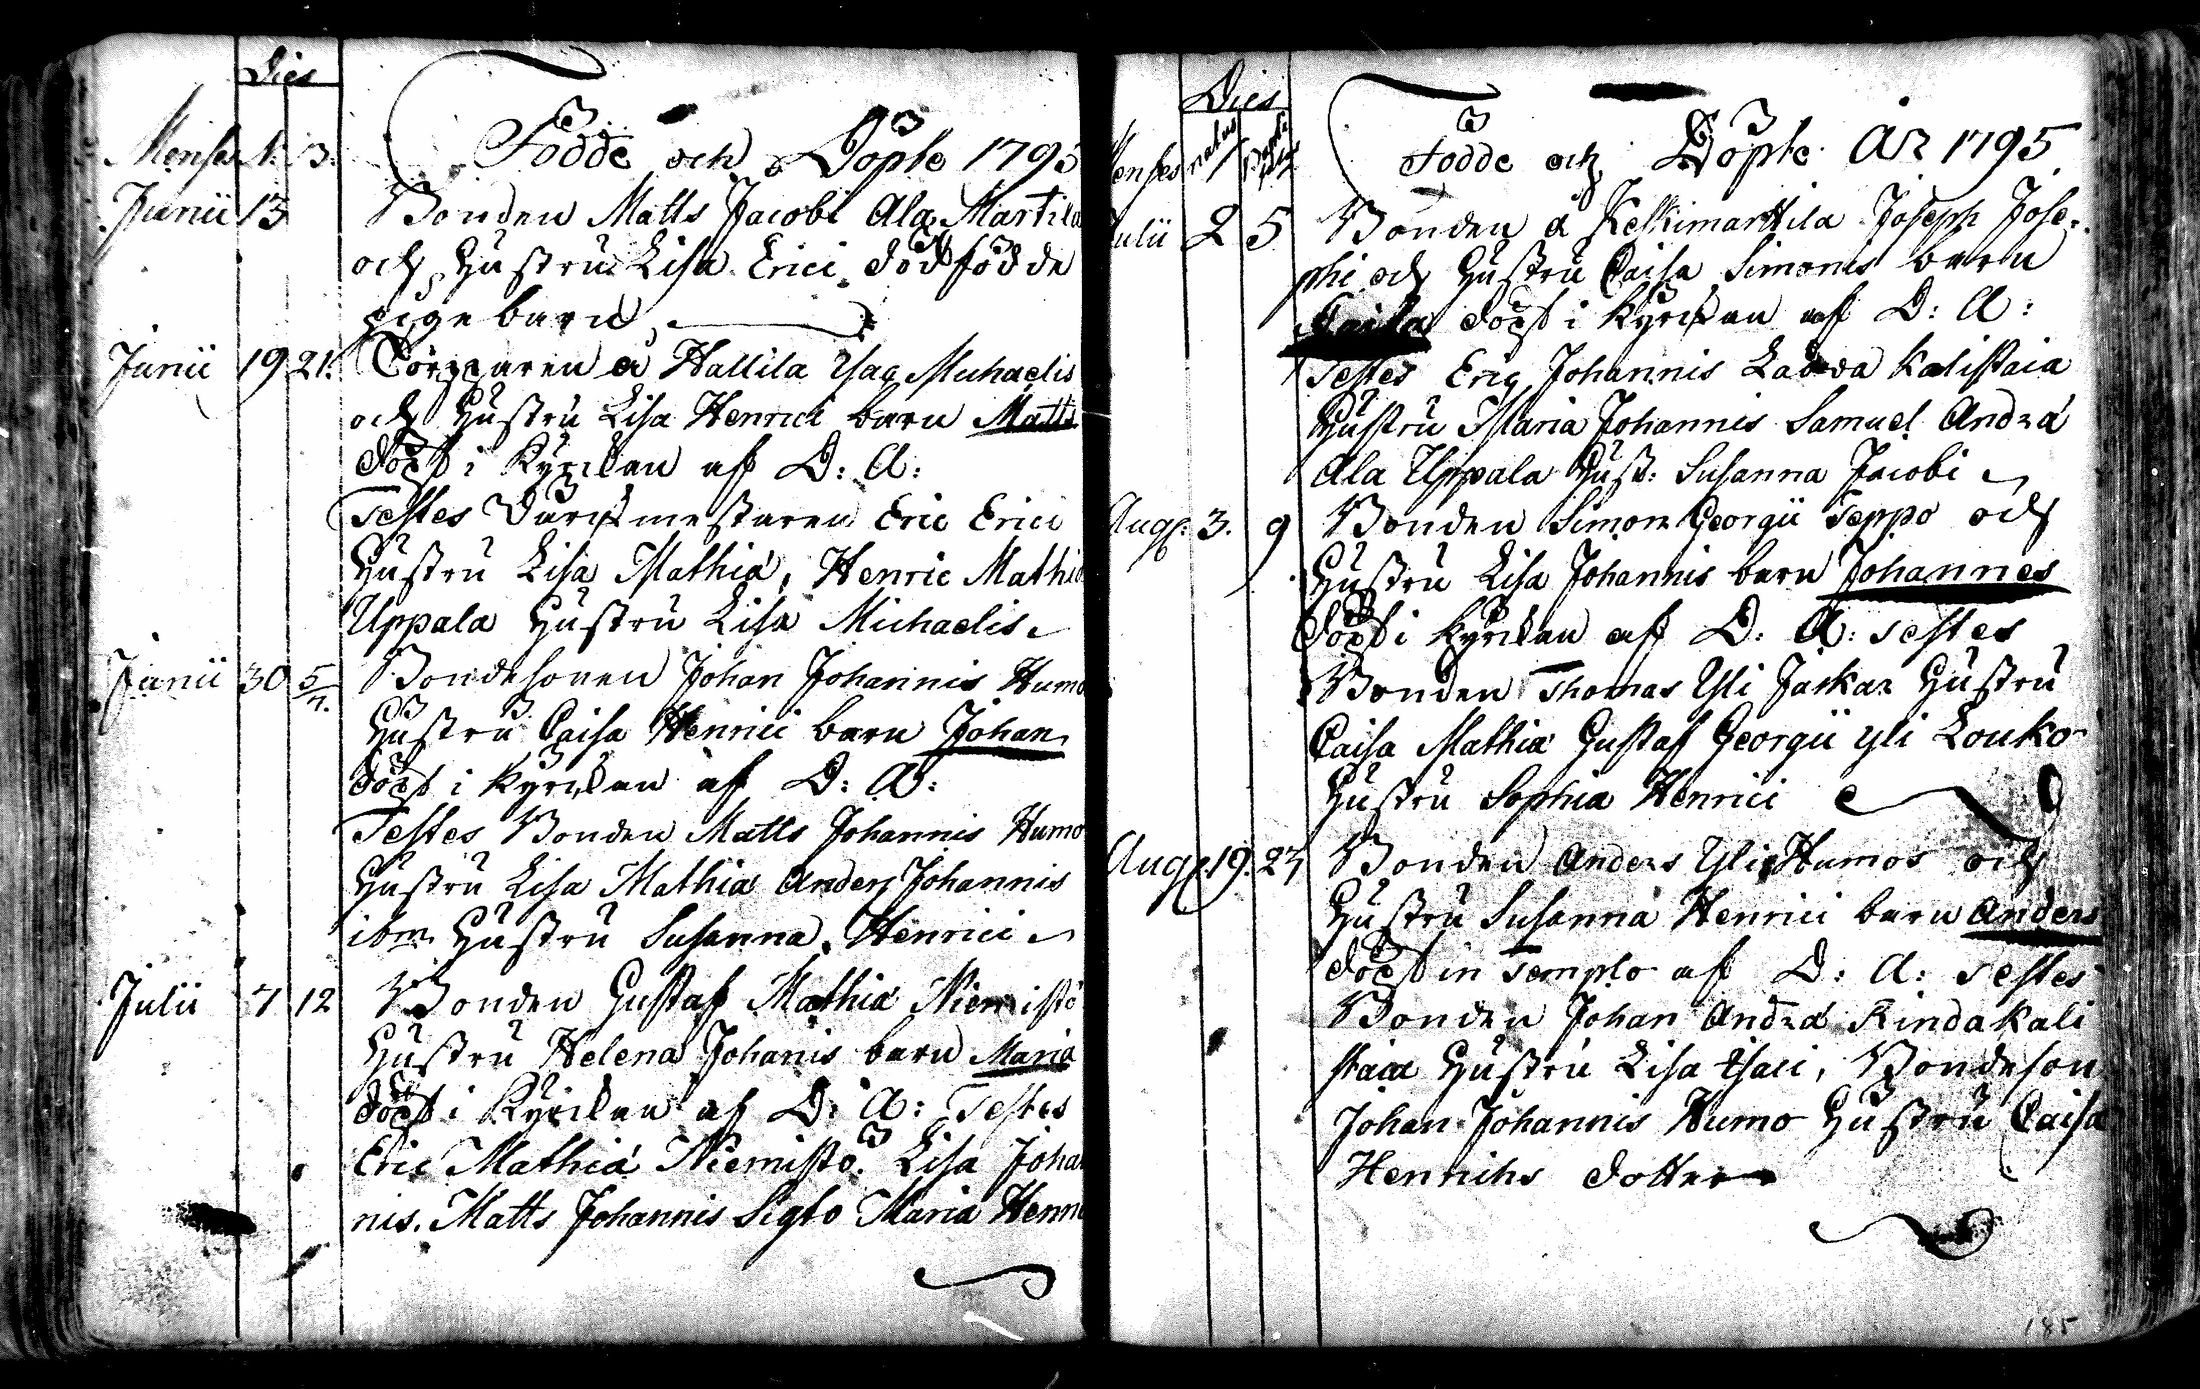 Dies
Menses N. B.
Födde och Döpte 1795
Junii 13
Bonden Matts Jacobi Ala Martila
och Hustru Lisa Erici dödfödde
pige barn
Junii 19 21.
Torpparen å Hallila Isac Michaelis
och Hustru Lisa Henrici barn Matts
döpt i Kyrckan af D: A:
Testes Durchmestaren Eric Erici
Hustru Lisa Mathiæ, Henric Mathiæ
Uppala Hustru Lisa Michaelis
Junii 30 5/7.
Bondesonen Johan Johannis Humo
Hustru Caisa Henrici barn Johan
döpt i Kyrckan af D: A:
Testes Bonden Matts Johannis Humo
Hustru Lisa Mathiæ Anders Johannis
ibm Hustru Susanna Henrici
Julii 7 12
Bonden Gustaf Mathiæ Niemistö
Hustru Helena Johanis barn Maria
döpt i Kyrckan af D: A: Testes
Eric Mathiæ Niemistö Lisa Johan
nis. Matts Johannis Siglo Maria Henri
Dies
Menses natus
Födde och Döpte År 1795
Julii 2 5
Bonden å Keskimarttila Joseph Jose-
phi och Hustru Caisa Simonis barn
Caisa döpt i Kyrckan af D: A:
Testes Eric Johannis Ladda Kalistaia
Hustru Maria Johannis Samuel Andræ
Ala Uppala Hust: Susanna Jacobi
Aug. 3. 9
Bonden Simon Georgii Seppo och
Hustru Lisa Johannis barn Johannes
döpt i Kyrckan af D: A: Testes
Bonden Thomas Yli Jaskar Hustru
Caisa Mathiæ Gustaf Georgii Yli Louko
Hustru Sophia Henrici
Aug. 19. 23
Bonden Anders Yli Humos och
Hustru Susanna Henrici barn Anders
döpt in Templo af D: A: Testes
Bonden Johan Andræ Rinda Kali
staia Hustru Lisa Isaci, Bondeson
Johan Johannis Humo Hustru Caisa
Henrichs dotter
185